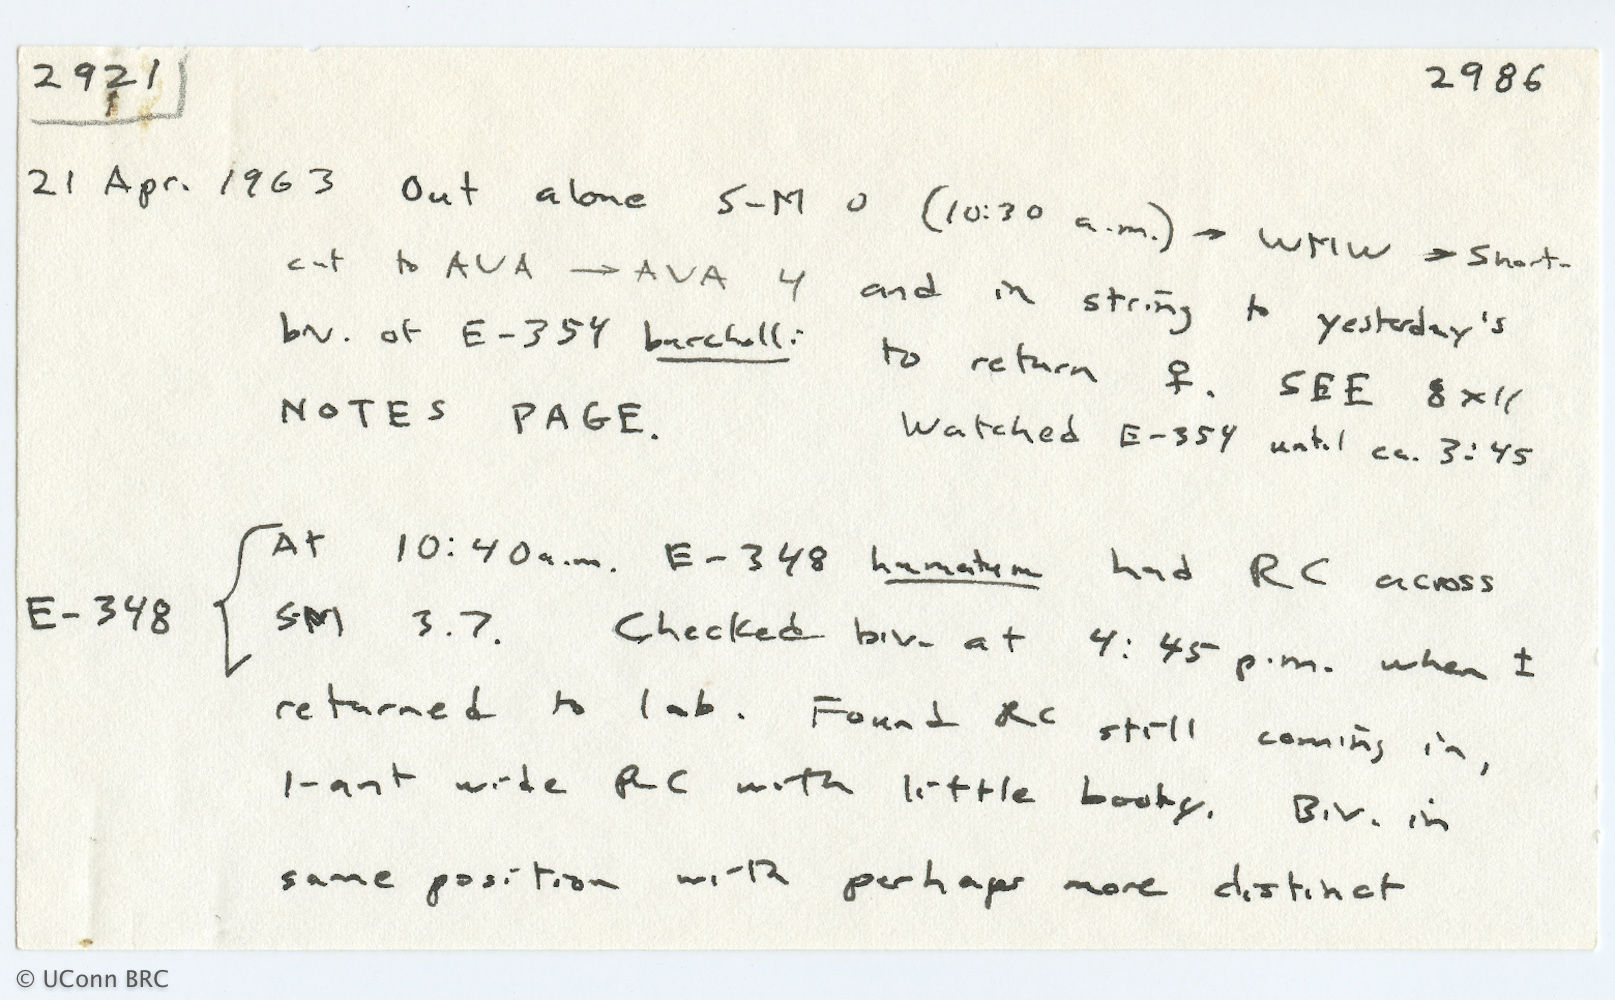 2921 2986
21 Apr. 1963 Out alone S-M 0 (10:30 a.m.) → WMW → Short-
cut to AVA → AVA 4 and in string to yesterday's
biv. of E-354 burchelli to return ♀. SEE 8x11
NOTES PAGE. Watched E-354 until ca. 3:45
E-348 { At 10:40 a.m. E-348 hamatum had RC across
SM 3.7. Checked biv. at 4:45 p.m. when I
returned to lab. Found RC still coming in,
1-ant wide RC with little booty. Biv. in
same position with perhaps more distinct
© UConn BRC